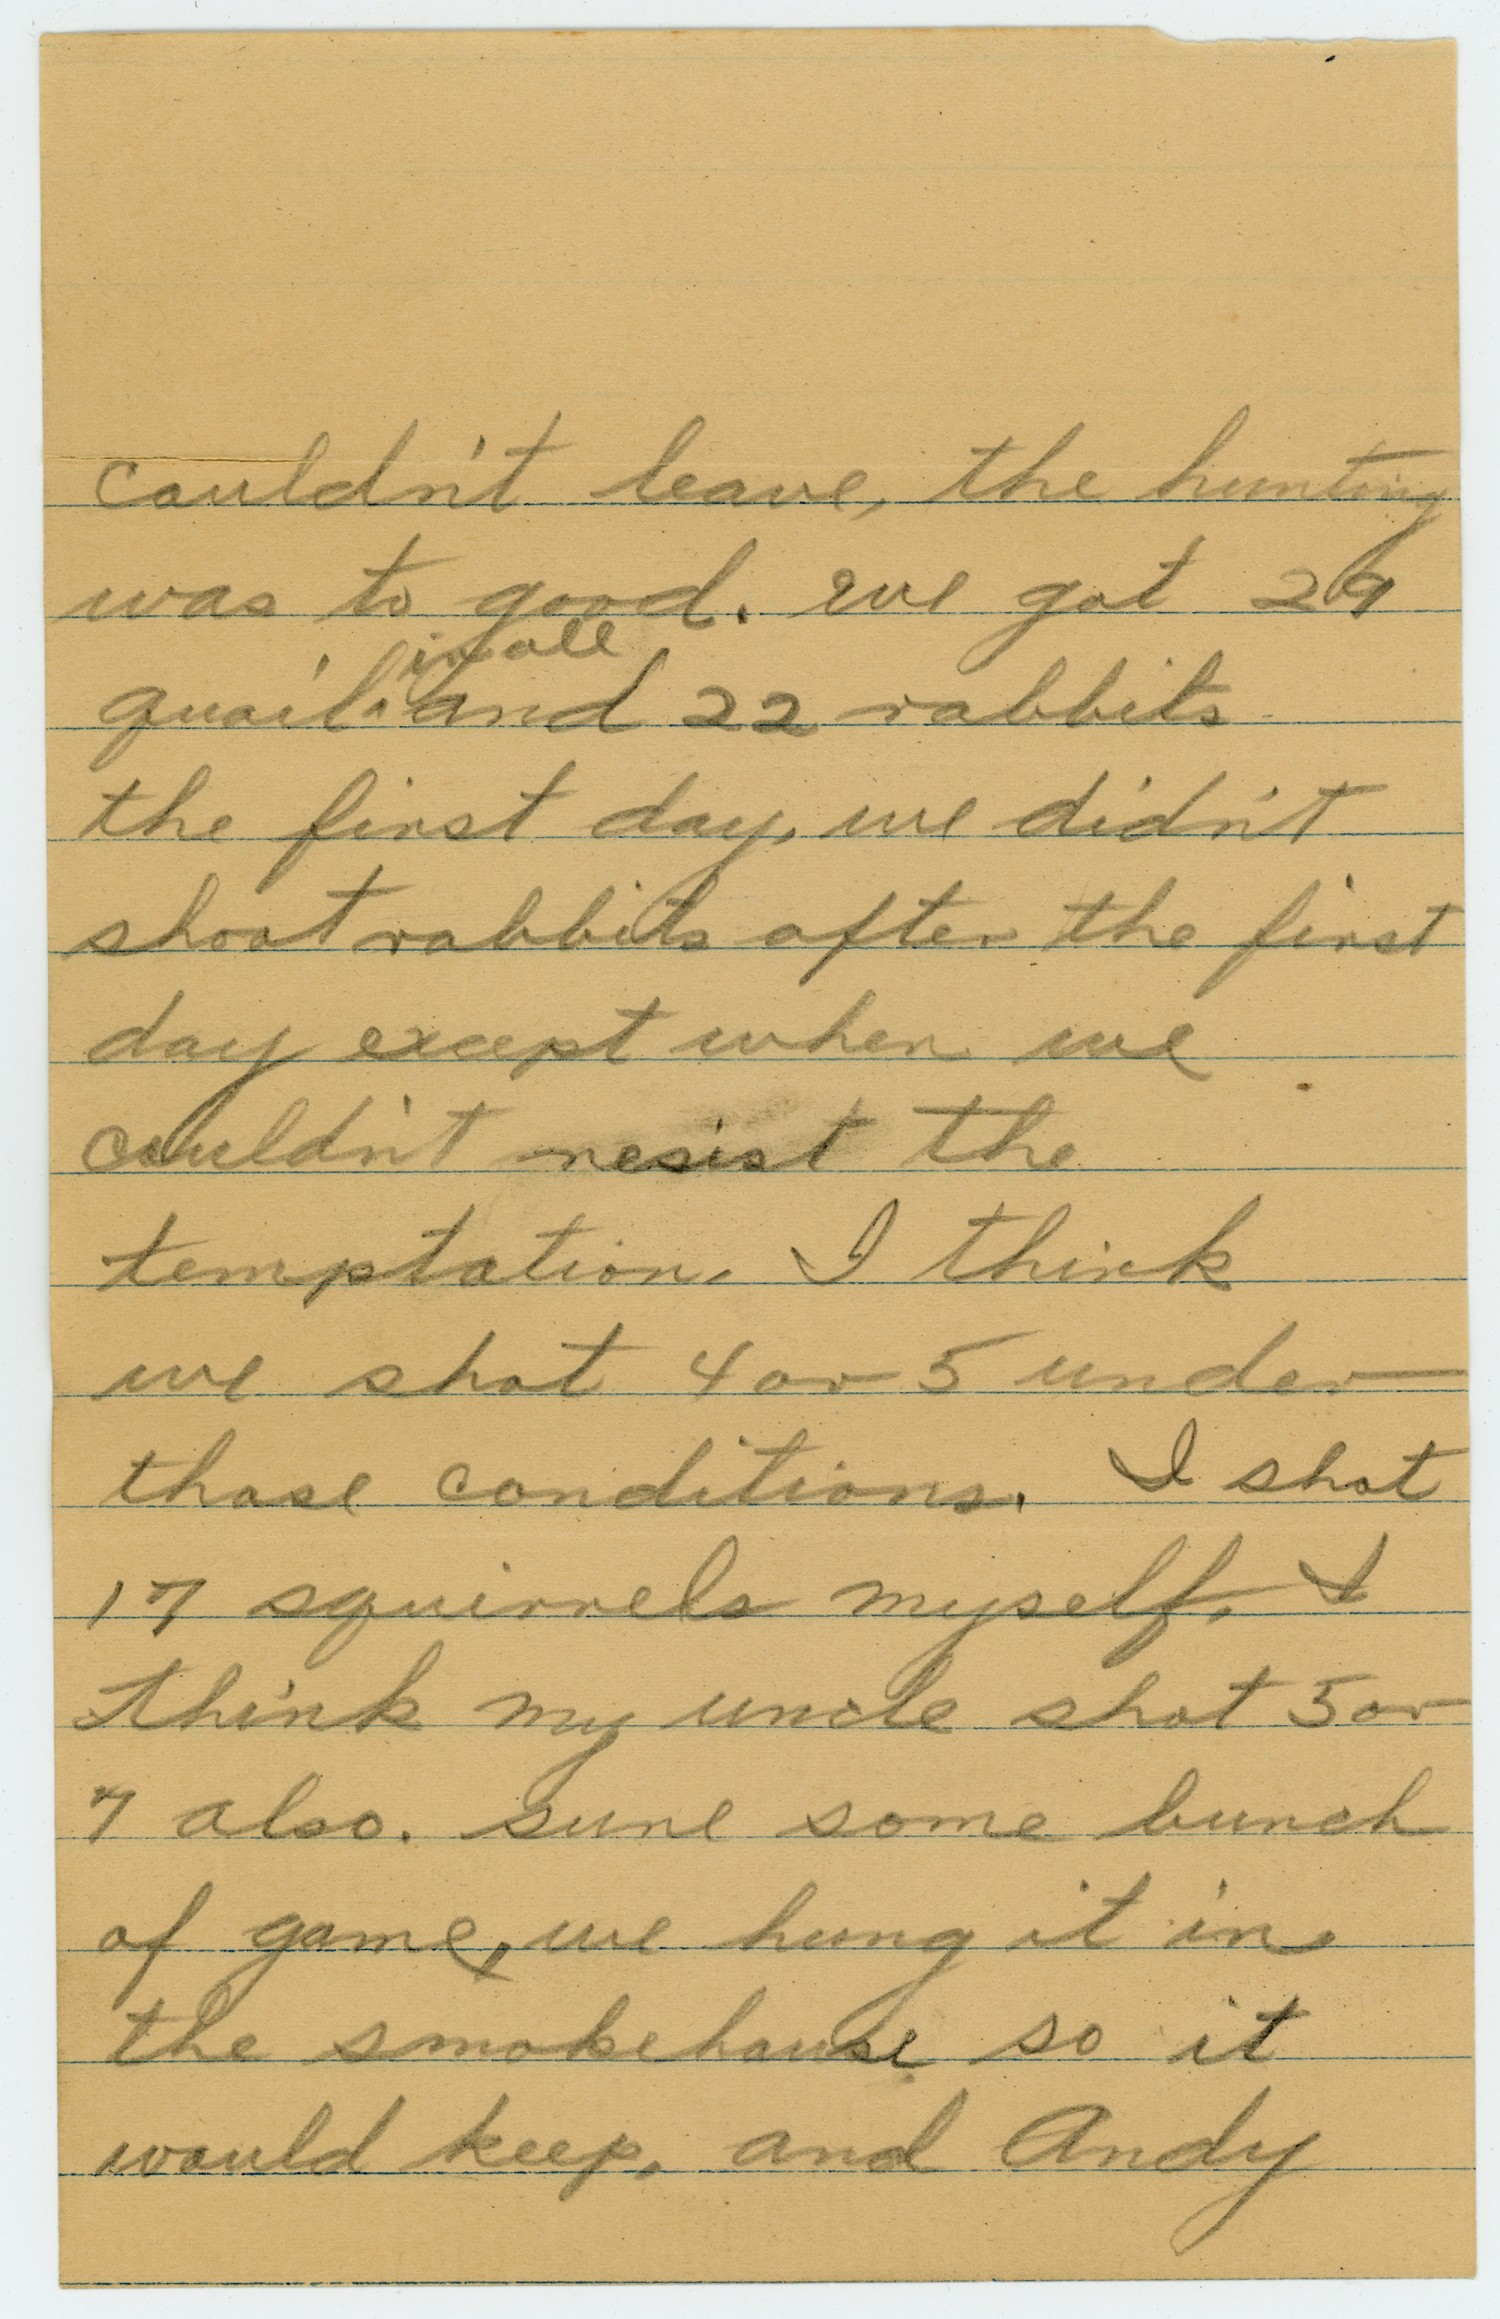 couldn't leave, the hunting
was to good. we got 29
in all
quail. and 22 rabbits
the first day, we didn't
shoot rabbits after the first
day except when we
couldn't resist the
temptation. I think
we shot 4 or 5 under
those conditions. I shot
17 squirrels myself. I
think my uncle shot 5 or
7 also. sure some bunch
of game, we hung it in
the smokehouse so it
would keep, and Andy